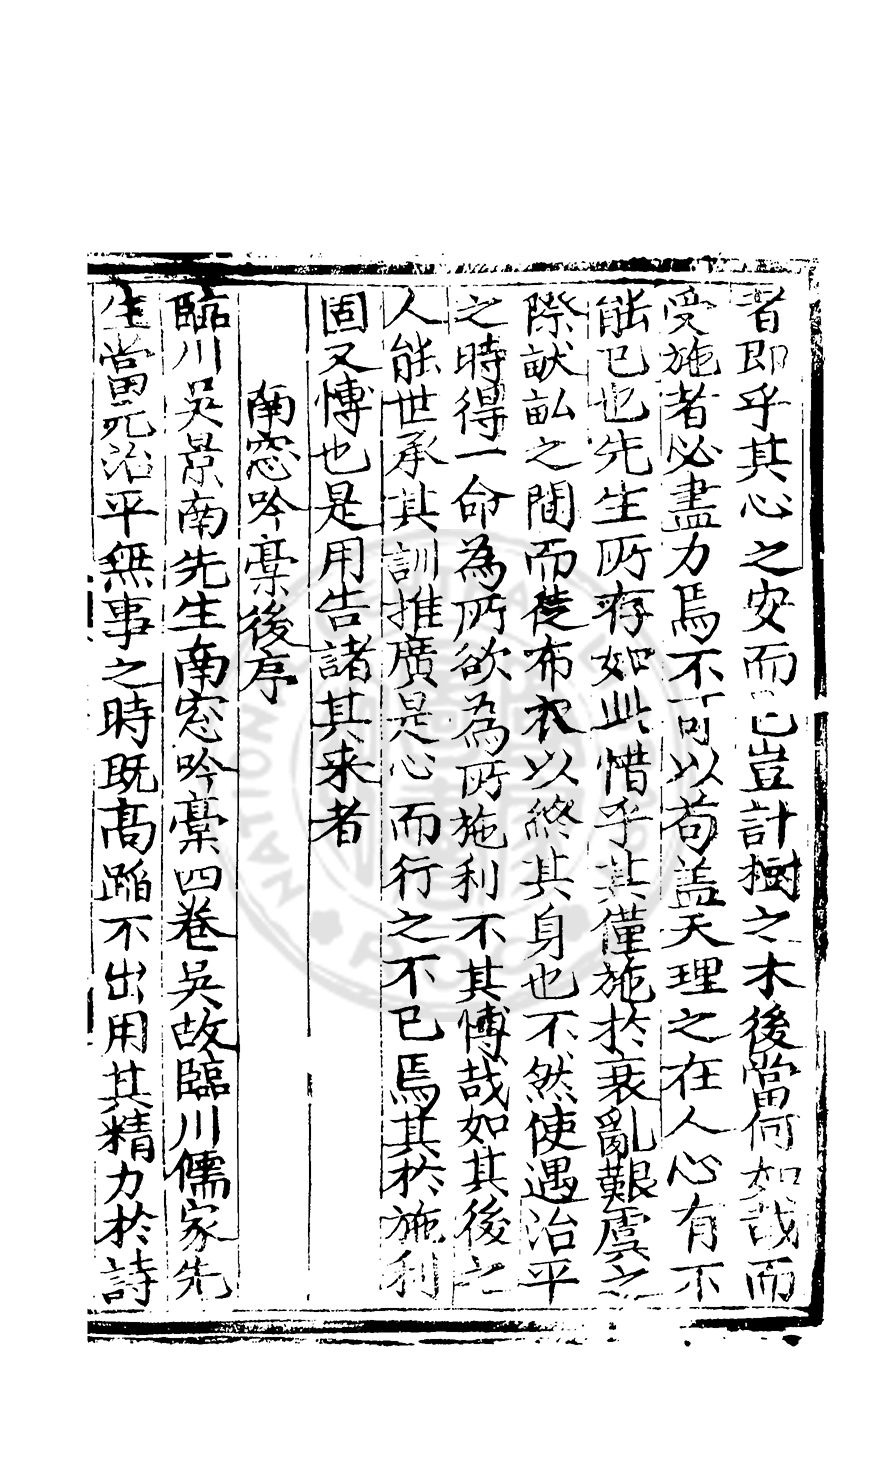 者即乎其心之安而已豈計樹之木後當何如哉而
受施者必盡力焉不可以苟盖天理之在人心有不
能已也先生所存如此惜乎其僅施於衰亂艱虞之
際畎畝之間而徒布衣以終其身也不然使遇治平
之時得一命為所欲為所施利不其愽哉如其後之
人能世承其訓推廣是心而行之不已焉其於施利
固又愽也是用告諸其来者
南窓吟稾後序
臨川吳景南先生南窓吟稾四卷吳故臨川儒家先
生當元治平無事之時既髙蹈不出用其精力於詩